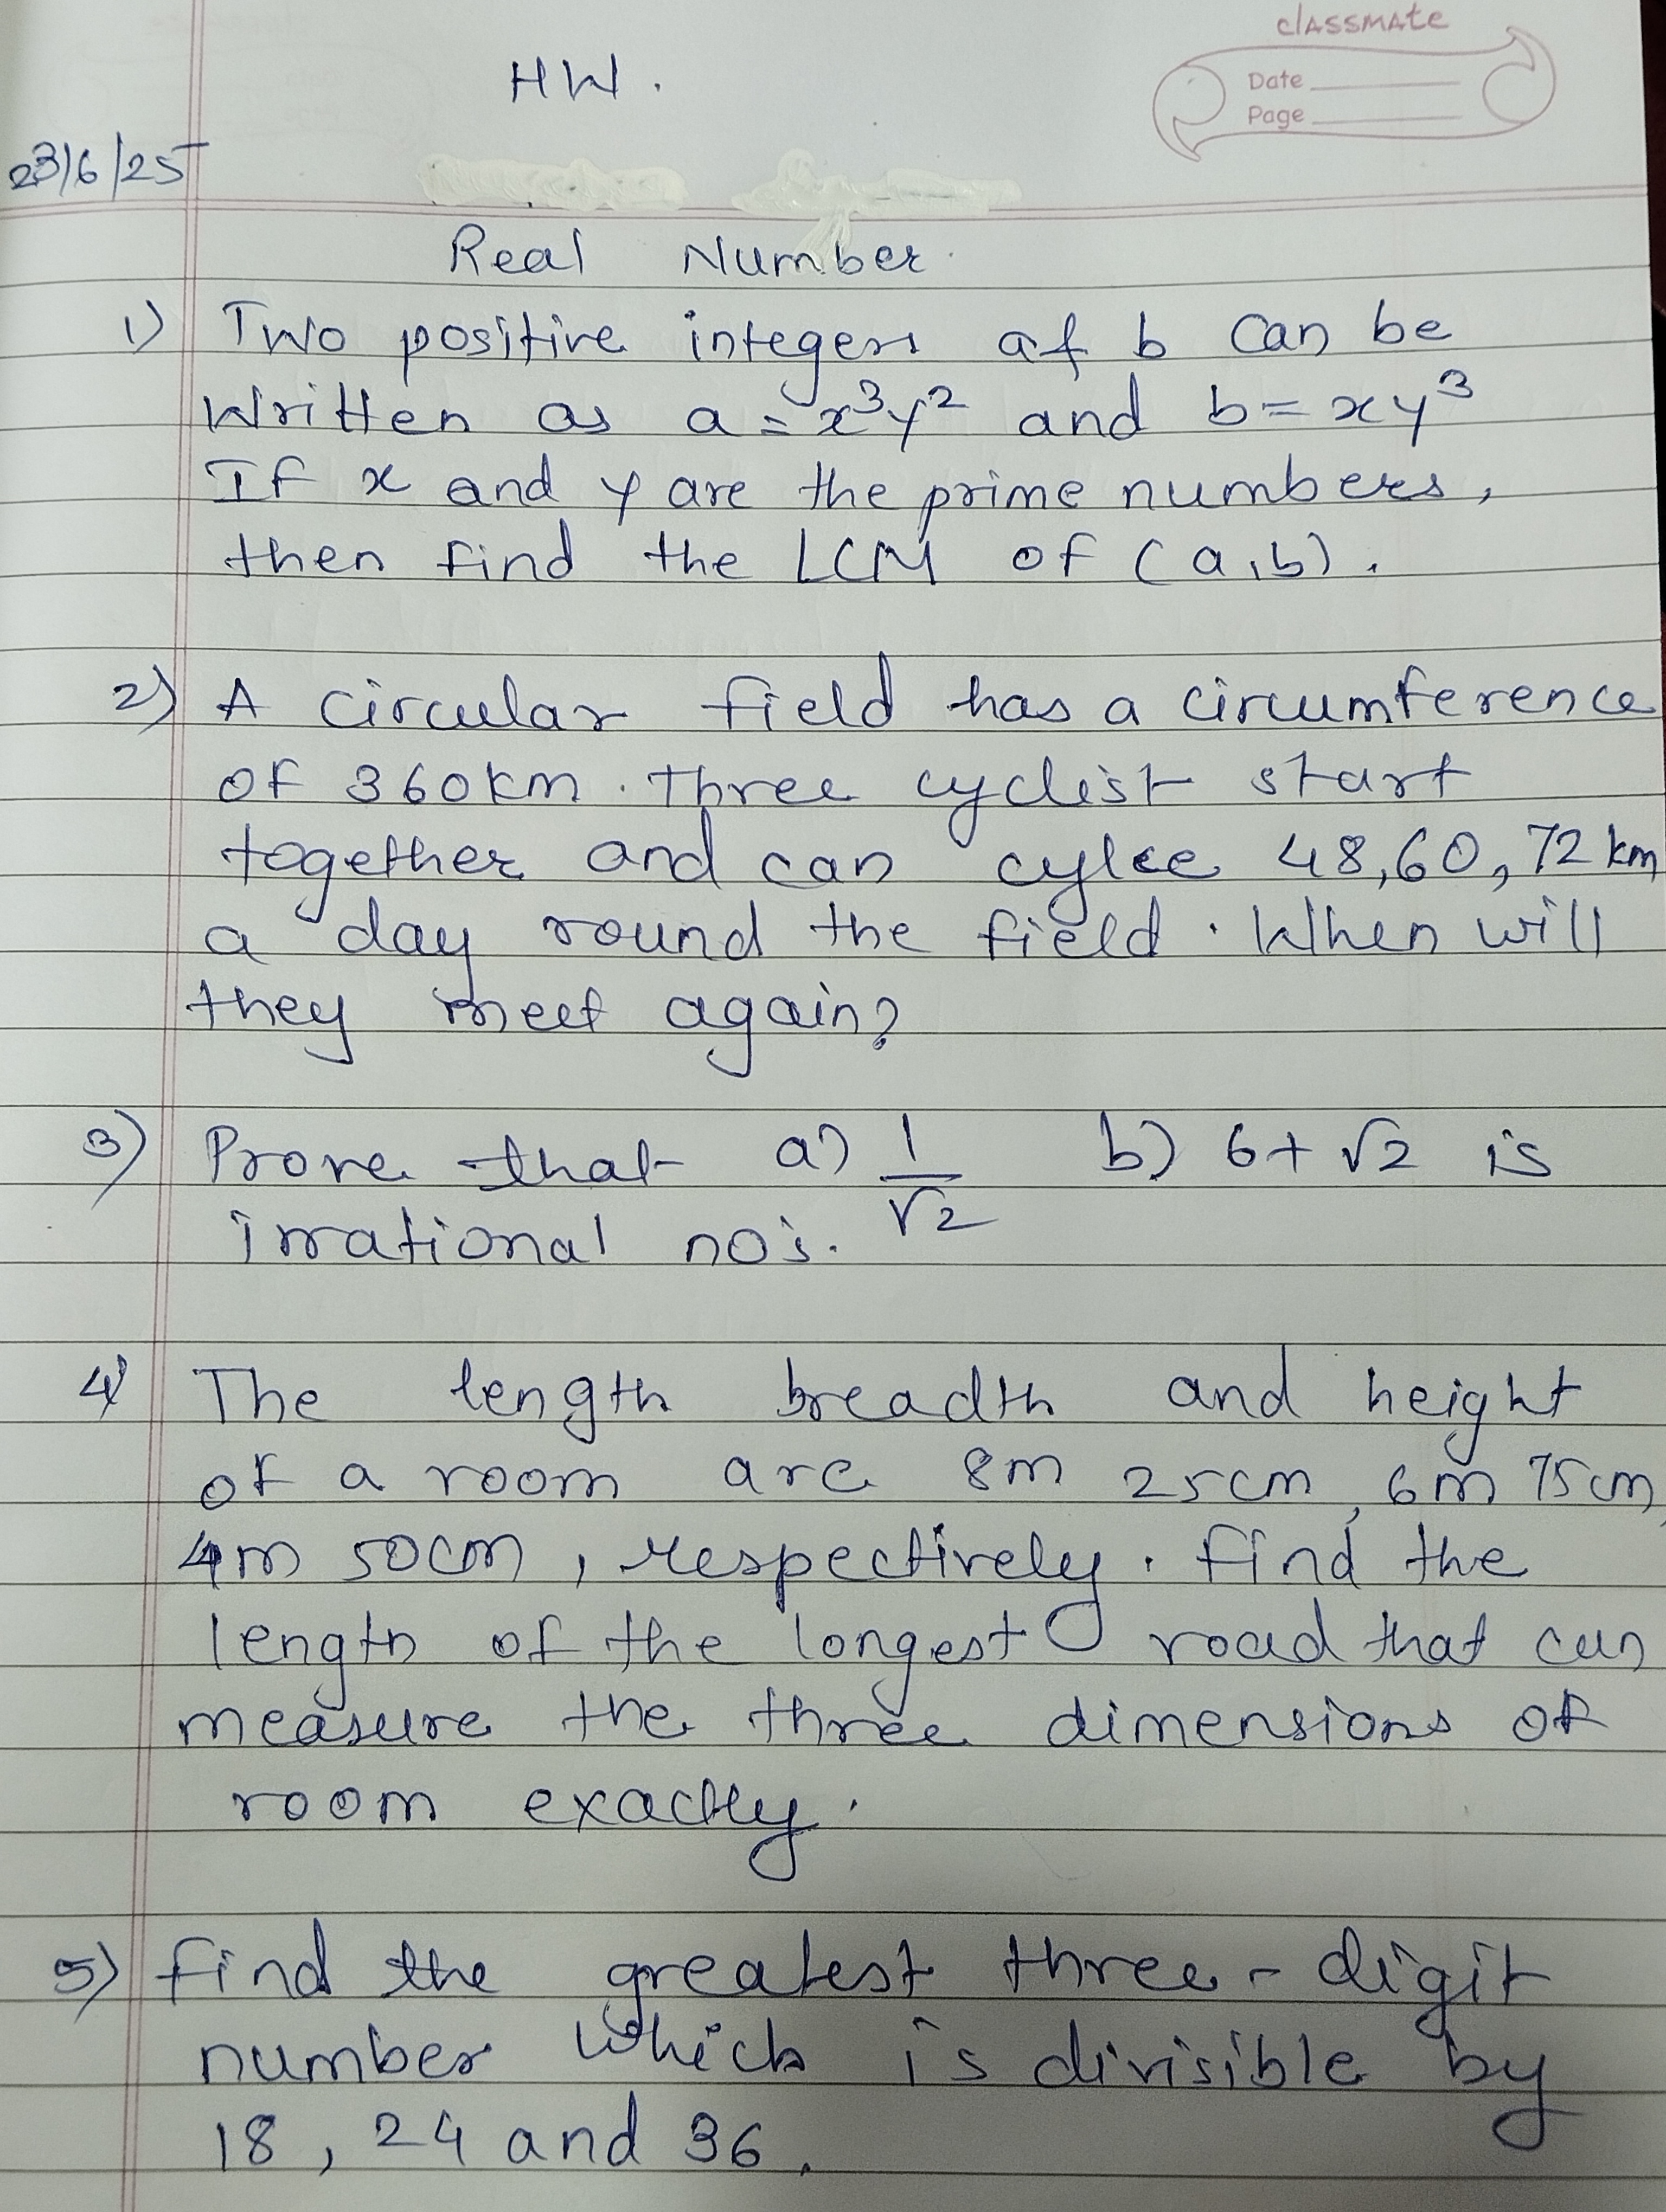 classmate
Date
Page
HW.
23/6/25
Real Number.
1) Two positive integers a & b can be
Written as a = x³y² and b = xy³
If x and y are the prime numbers,
then find the LCM of (a,b).
2) A circular field has a circumference
of 360km. Three cyclist start
together and can cylce 48,60,72 km
a day round the field. When will
they meet again?
3) Prove that a) 1/√2 b) 6+√2 is
irrational no's.
4) The length breadth and height
of a room are 8m 25cm, 6m 75cm,
4m 50cm, respectively. Find the
length of the longest road that can
measure the three dimensions of
room exactly.
5) Find the greatest three-digit
number which is divisible by
18, 24 and 36.